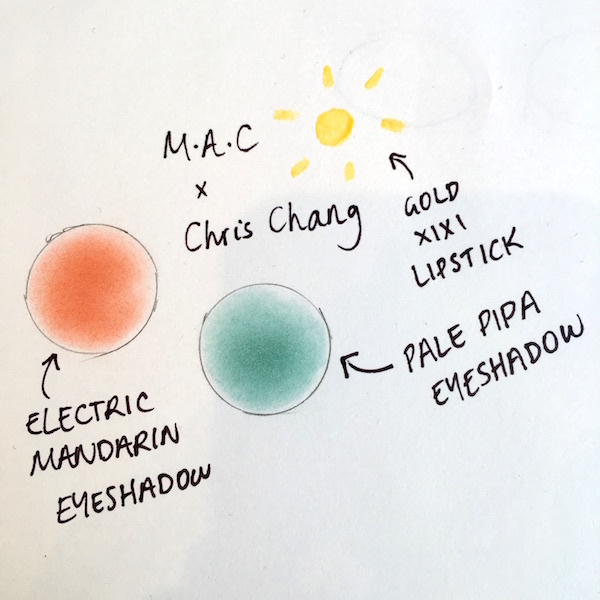 M.A.C
x
Chris Chang
GOLD
XIXI
LIPSTICK
PALE PIPA
EYESHADOW
ELECTRIC
MANDARIN
EYESHADOW